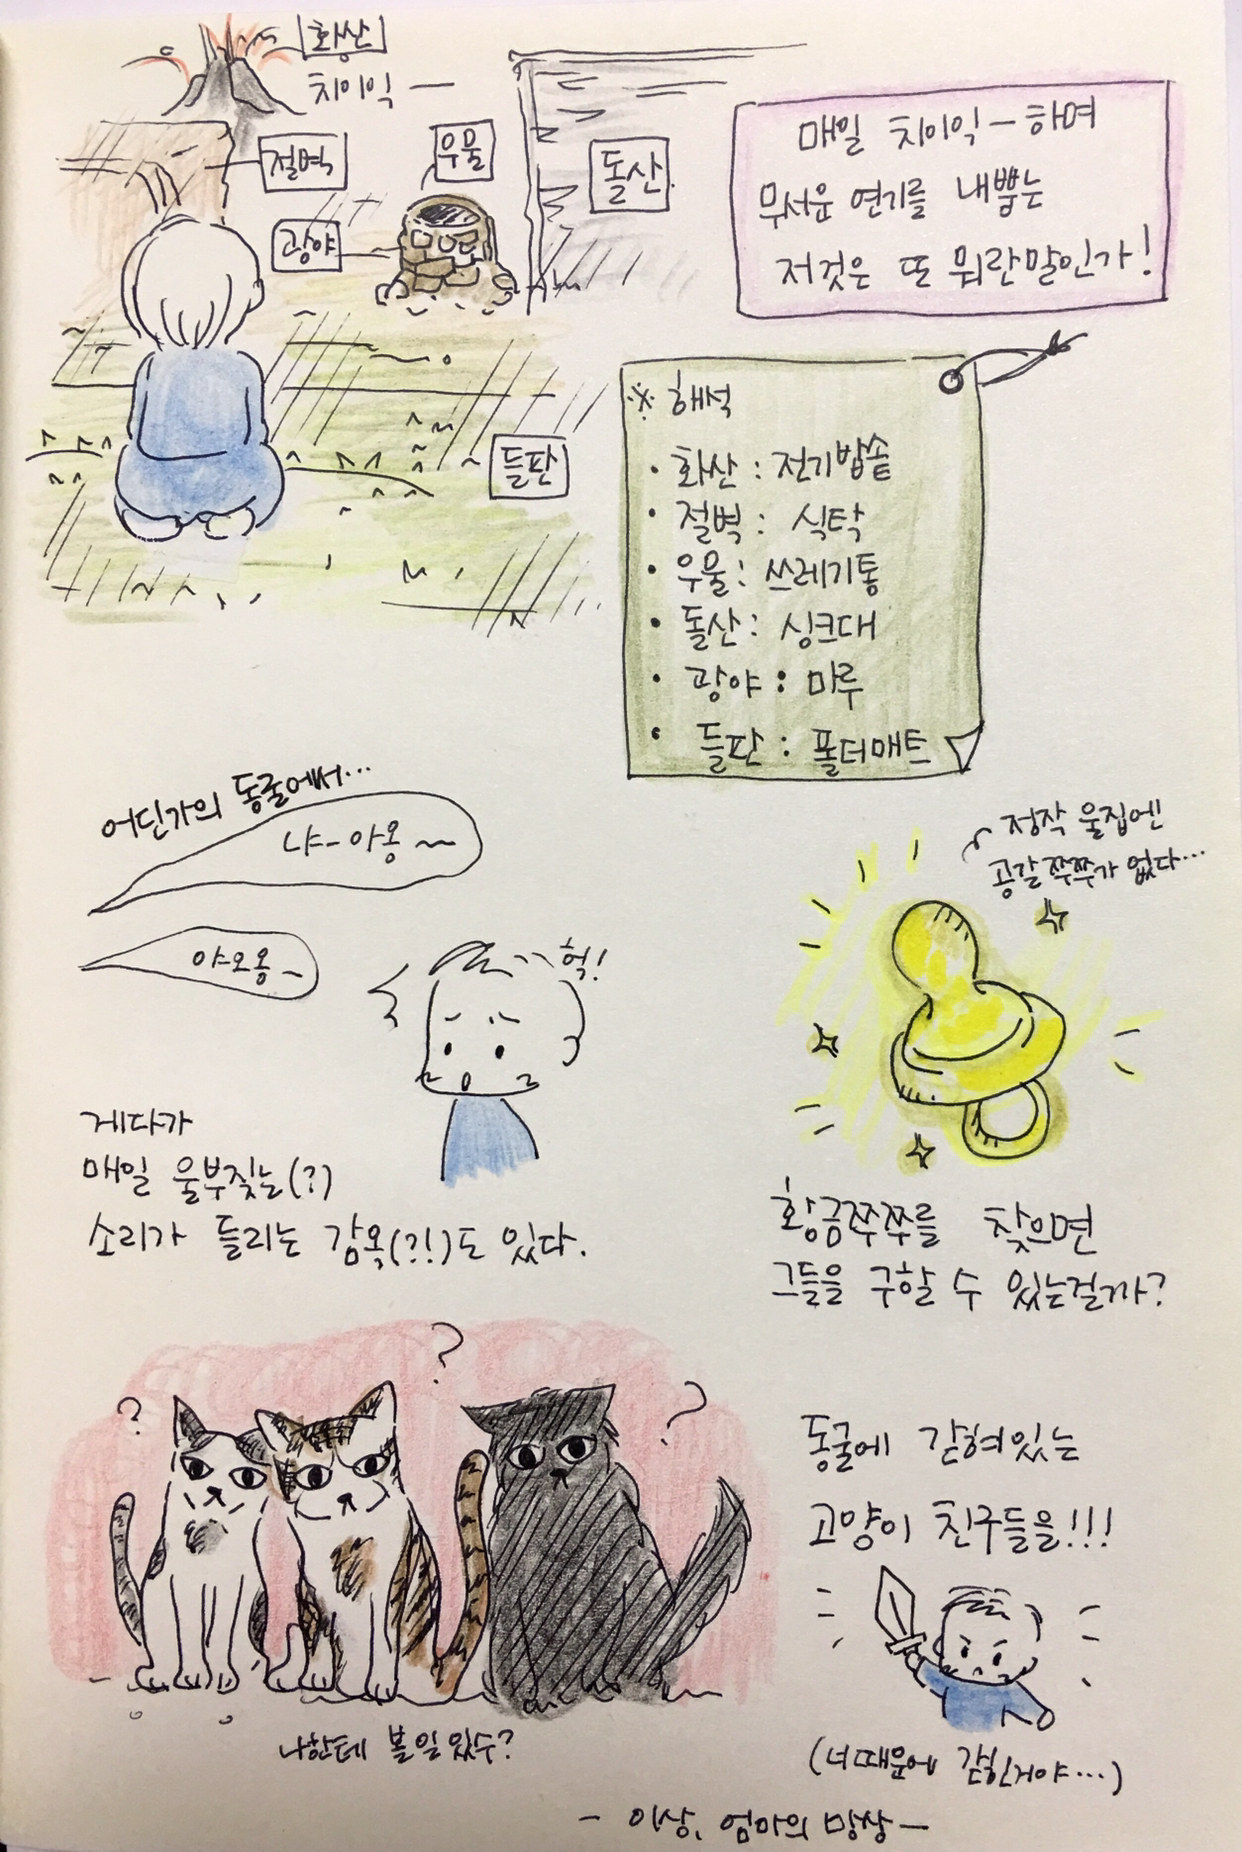 화산
치이익 —
절벽
우물
돌산
광야
들판
매일 치이익 — 하며
무서운 연기를 내뿜는
저것은 또 뭐란말인가!
※ 해석
• 화산 : 전기밥솥
• 절벽 : 식탁
• 우물 : 쓰레기통
• 돌산 : 싱크대
• 광야 : 마루
• 들판 : 폴더매트
어딘가의 동굴에서…
냐-아옹~
야오옹~
헉!
게다가
매일 울부짖는(?)
소리가 들리는 감옥(?!)도 있다.
정작 울집엔
공갈쭉쭉가 없다…
황금쭈쭈를 찾으면
그들을 구할 수 있는걸까?
?
?
?
나한테 볼일있수?
동굴에 갇혀있는
고양이 친구들을!!!
(너때문에 갇힌거야…)
- 이상, 엄마의 망상 -